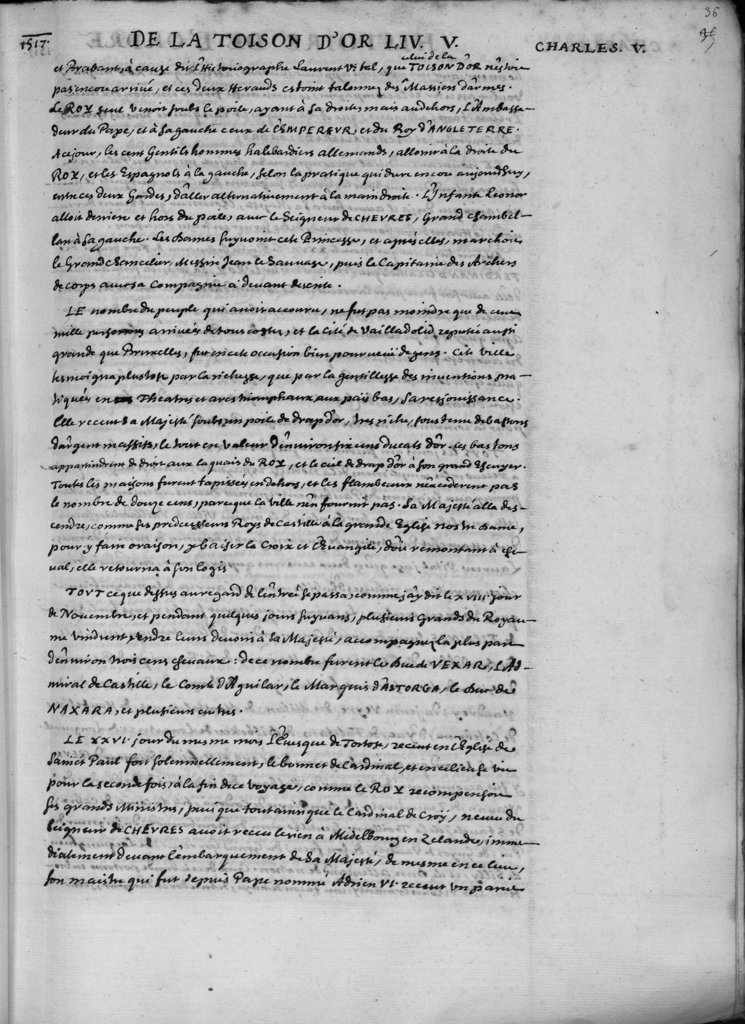 36
1517. DE LA TOISON D'OR LIV. V. CHARLES. V.
celui de la
et Brabant, à cause dit l'Historiographe Laurent Vital, que TOISON D'OR n'estoit
pas encou arrivé, et ces deux Herauds estoint talonnez des Massiers d'armes.
Le ROY seul venoit soubs le poile, ayant à sa droite, mais au dehors, l'Ambassa-
deur du Pape, et à sa gauche ceux de l'EMPEREUR, et du Roy d'ANGLETERRE.
Ace jour, les cent Gentils hommes halebardiers allemands, alloint à la droite du
ROY, et les Espagnols à la gauche, selon la pratique qui dure encou aujourdhuy,
entre ces deux Gardes, d'aller alternativement à la main droite. L'Infante Leonor
alloit derriere et hors du poile, avec le Seigneur de CHEVRES, Grand Chambel-
lan à sa gauche. Les Dames suyvoint cete Princesse, et aprés elles, marchoit
le Grand Chancelier, Messire Jean le Sauvage, puis le Capitaine des Archers
de corps avec sa Compagnie à devant descrite.
LE nombre du peuple qui avoit accouru, ne fut pas moindre que de cent
mille personnes arrivées de tous costez, et la Cité de Vailladolid reputée aussi
grande que Bruxelles, fut en cete occasion bien pourveuë de gens. Cete ville
tesmoigna plustost par la richesse, que par la gentillesse des inventions pra-
tiquées en Theatres et arcs triomphaux aux païs bas, sa resjouissance.
Elle receut sa Majesté soubs un poile de drap d'or, tres riche, soustenu de bastons
d'argent massifs, le tout en valeur d'environ six cens ducats d'or. ces bastons
appartindrent de droit aux laquais du ROY, et le ciel de drap d'or à son grand Escuyer.
Toutes les maisons furent tapissées en dehors, et les flambeaux n'excederent pas
le nombre de douze cens, parce que la ville n'en fournit pas. Sa Majesté alla des-
cendre, comme ses predecesseurs Roys de Castille à la grande Eglise nostre Dame,
pour y faire oraison, y baiser la Croix et l'Evangile, d'où remontant à che-
val, elle retourna à son logis
TOUT ce que dessus au regard de l'entrée se passa, comme j'ay dit le XVIII. jour
de Novembre, et pendant quelques jours suyvans, plusieurs Grands du Royau-
me vindrent rendre leurs devoirs à sa Majesté, accompagnez la plus part
d'environ trois cens chevaux: de ce nombre furent le Duc de VEXAR, l'Ad-
miral de Castille, le Comte d'Aguilar, le Marquis d'ASTORGA, le Duc de
NAXARA, et plusieurs autres.
LE XXVI. jour du mesme mois l'Evesque de Tortose, receut en l'Eglise de
Sainct Paul fort solemnellement, le bonnet de Cardinal, et en ce lieu se vit
pour la seconde fois, à la fin de ce voyage, comme le ROY recompensoit
ses grands Ministres, puis que tout ainsi que le Cardinal de Croÿ, neveu du
Seigneur de CHEVRES avoit receu le sien à Midelbourg en Zelande, imme-
diatement devant l'embarquement de sa Majesté, de mesme en ce lieu,
son maistre qui fut depuis Pape nommé Adrien VI. receut un pareil